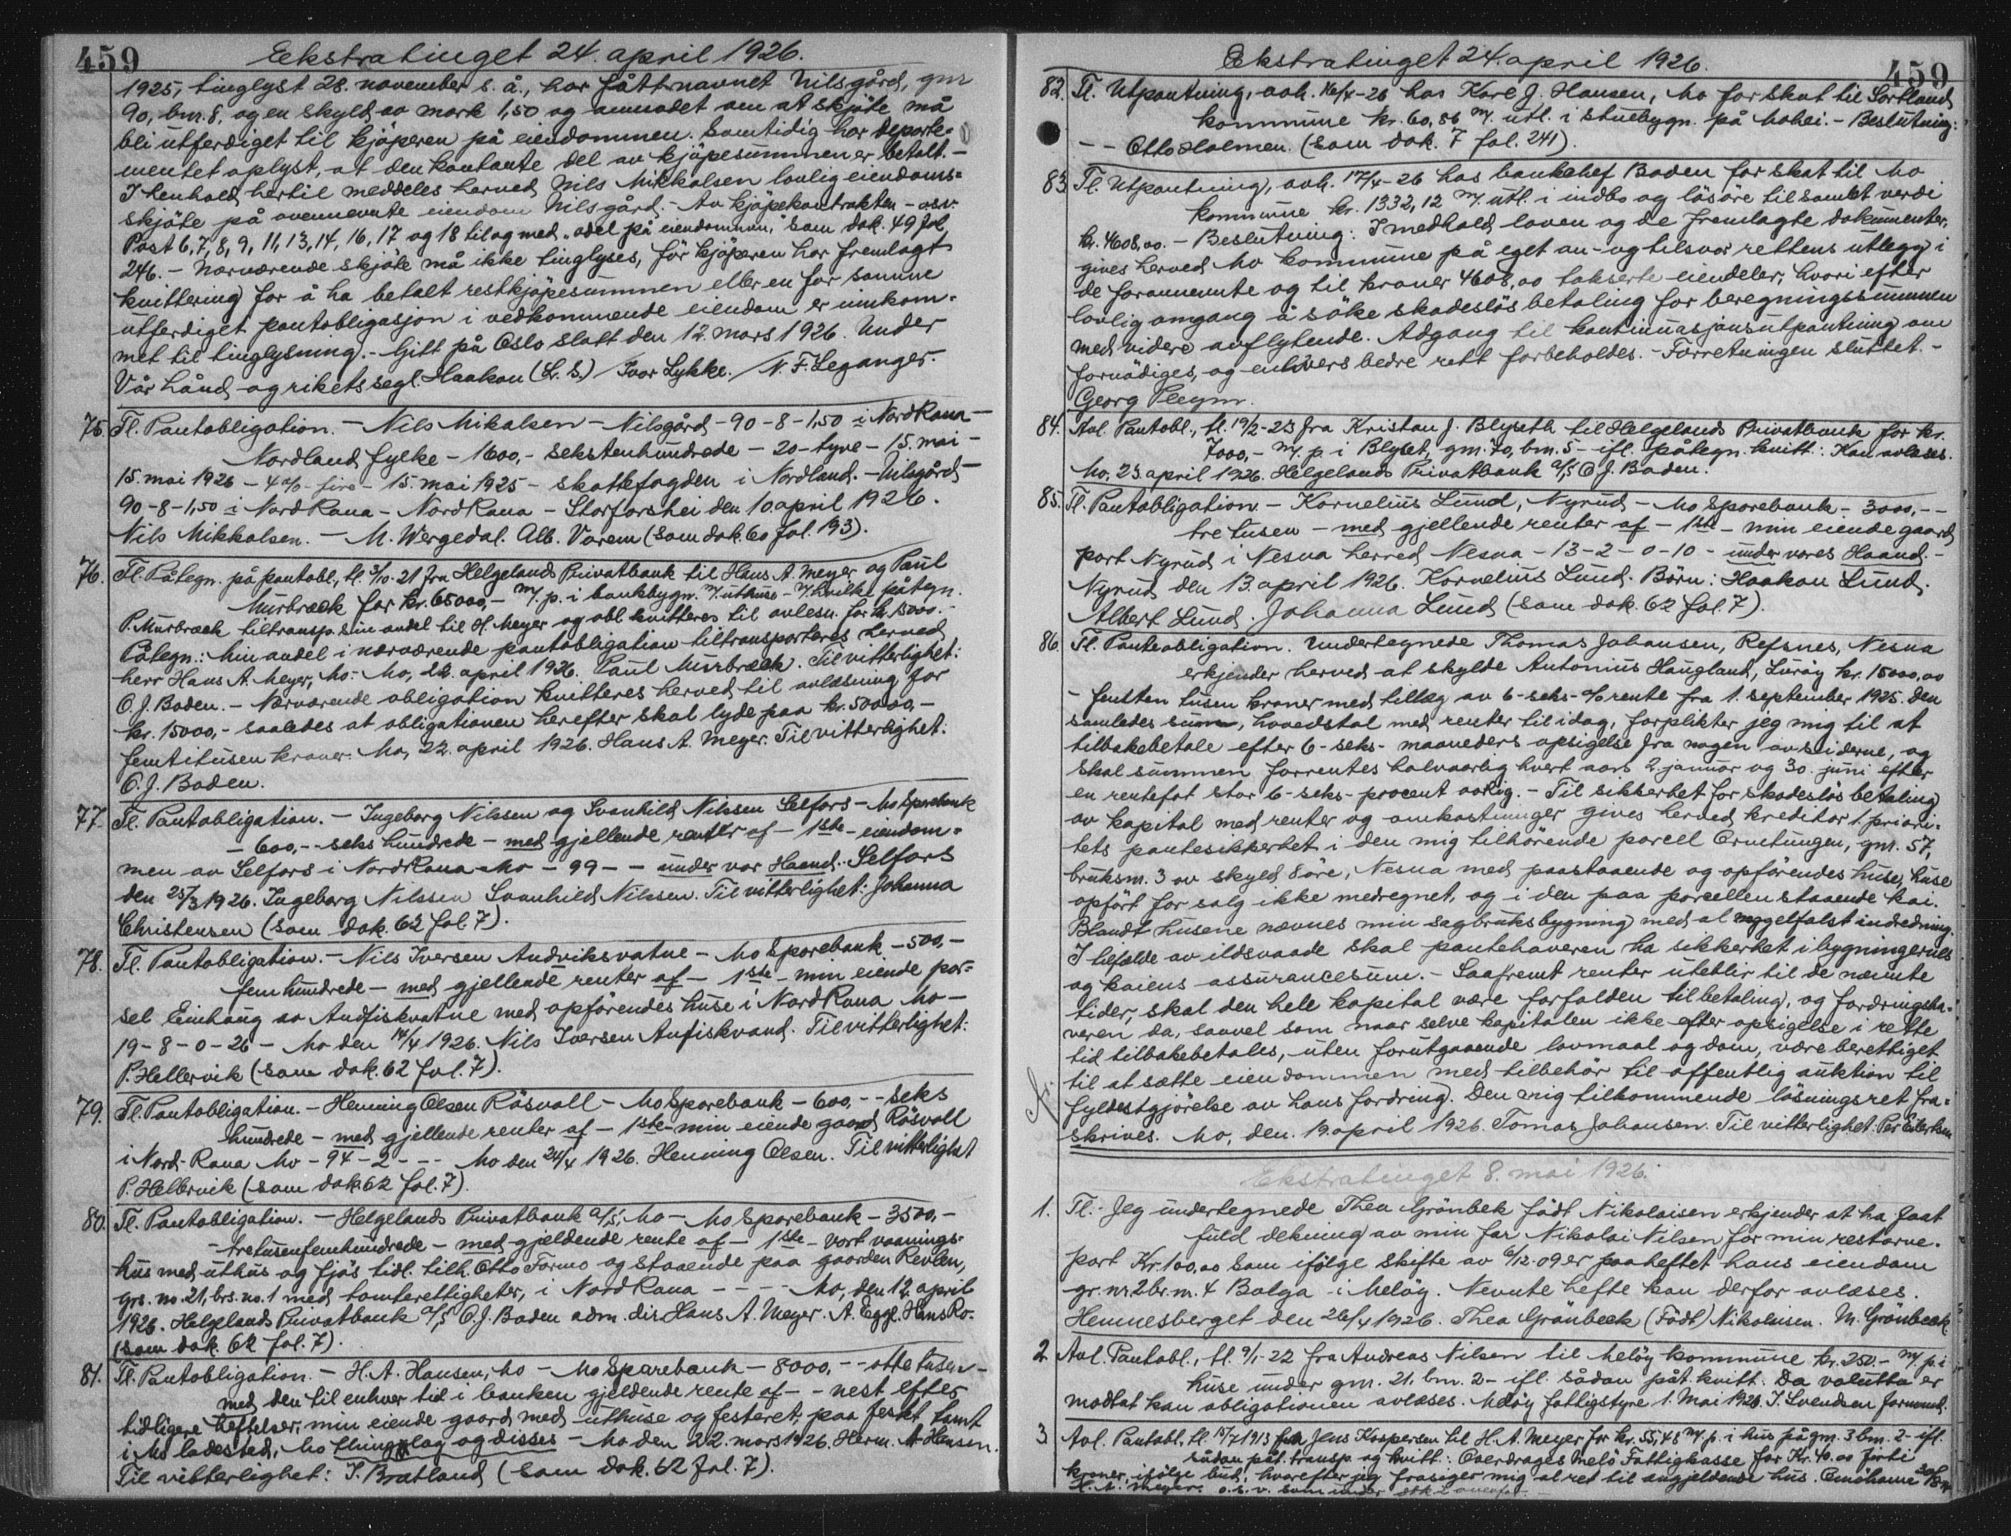 459
Ekstratinget 24. april 1926.
1925, tinglyst 28. november s. å., har fått navnet Nilsgård, gnr
90, bnr. 8, og en skyld av mark 1,50 og anmodet om at skjøte må
bli utferdiget til kjøperen på eiendommen. Samtidig har departe-
mentet oplyst, at den kontante del av kjøpesummen er betalt. -
I henhold hertil meddeles herved Nils Mikkalsen lovlig eiendoms-
skjøte på ovennevnte eiendom Nilsgård. - Av kjøpekontrakten - osv.
Post 6, 7, 8, 9, 11, 13, 14, 16, 17 og 18 til og med „odel på eiendommen," som dok. 49 fol.
246. - Nærværende skjøte må ikke tinglyses, før kjøperen har fremlagt
kvittering for å ha betalt restkjøpesummen eller en for samme
utferdiget pantobligasjon i vedkommende eiendom er innkom-
met til tinglysning. - Gitt på Oslo slott den 12. mars 1926. Under
Vår hånd og rikets segl. Haakon (L. S.) / Ivar Lykke. / N. F. Leganger.
75. Tl. Pantobligation. - Nils Mikalsen - Nilsgård - 90 - 8 - 1,50 i Nord Rana -
Nordland fylke - 1600,- sekstenhundrede - 20 - tyve - 15. mai -
15. mai 1926 - 4 % fire - 15. mai 1925 - skattefogden i Nordland. - Nilsgård -
90 - 8 - 1,50 i Nord Rana - Nord Rana - Storforshei den 10. april 1926.
Nils Mikkalsen. - M. Wergedal. Alb. Varem (som dok. 60 fol. 193).
76. Tl. Påtegn. på pantobl., tl. 3/10-21 fra Helgelands Privatbank til Hans A. Meyer og Paul
Murbræck for kr. 65000,- m/ p. i bankbygn. m/ uthuse - m/ hvilke påtegn.
P. Murbræck tiltransp. sin andel til H. Meyer og obl. kvitteres til avlesn. for kr. 15000. -
Påtegn.: Min andel i nærværende pantobligation tiltransporteres herved
herr Hans A. Meyer, Mo. - Mo, 22. april 1926. Paul Murbræck. Til vitterlighet:
O. J. Baden. - Nærværende obligation kvitteres herved til avlæsning for
kr. 15000,- saaledes at obligationen herefter skal lyde paa kr. 50000,-
femtitusen kroner. Mo, 22. april 1926. Hans A. Meyer. Til vitterlighet:
O. J. Baden.
77. Tl. Pantobligation. - Ingeborg Nilssen og Svanhild Nilssen Selfors - Mo Sparebank
- 600,- - seks hundrede - med gjellende renter af - 1ste - eiendom-
men av Selfors i Nord Rana Mo - 99 - - under vor Haand. - Selfors
den 25/3 1926. Ingeborg Nilssen Svanhild Nilssen. Til vitterlighet: Johanna
Christensen (som dok. 62 fol. 7).
78. Tl. Pantobligation. - Nils Iversen Andviksvatne - Mo Sparebank - 500,-
fem hundrede - med gjellende renter af - 1ste - min eiende par-
sel Einhaug av Andfiskvatne med opførendes huse i Nord Rana Mo -
19 - 8 - 0 - 26 - Mo den 14/4 1926. Nils Iversen Anfiskvand. Til vitterlighet:
P. Hellervik (som dok. 62 fol. 7).
79. Tl. Pantobligation. - Henning Olsen Røsvoll - Mo Sparebank - 600,- - seks
hundrede - med gjellende renter af - 1ste - min eiende gaard Røsvoll
i Nord-Rana Mo - 94 - 2 - - - Mo den 24/4 1926. Henning Olsen. Til vitterlighet
P. Hellervik (som dok. 62 fol. 7).
80. Tl. Pantobligation. - Helgelands Privatbank A/S, Mo - Mo Sparebank - 3500,-
- tretusenfemhundrede - med gjeldende rente af - 1ste - vort vaanings-
hus med uthus og fjøs tidl. tilh. Otto Formo og staaende paa gaarden Revlen,
grs. no. 21, brs. no. 1 med tomterettigheter, i Nord Rana - - - Mo, den 17. april
1926. Helgelands Privatbank A/S O. J. Baden adm. dir. Hans A. Meyer. A. Egge. Hans Ro.
(som dok. 62 fol. 7).
81. Tl. Pantobligation. - H. A. Hansen, Mo - Mo Sparebank - 8000,- - otte tusen -
med den til enhver tid i banken gjeldende rente af - - nest efter
tidligere heftelser, min eiende gaard med uthuse og festeret, paa festet tomt
i Mo ladested, Mo thinglag og disses - Mo den 22. mars 1926. Herm. A. Hansen.
Til vitterlighet: I. Bratland (som dok. 62 fol. 7).
Ekstratinget 24. april 1926.
459
82. Tl. Utpantning, avh. 16/4-26 hos Karl J. Hansen, Mo for skat til Sortland
kommune kr. 60,86 m/ utl. i stuebygn. på Mohei. - Beslutning:
- - Otto Holmen. (som dok. 7 fol. 241).
83. Tl. Utpantning, avh. 17/4-26 hos bankchef Baden for skat til Mo
kommune kr. 1332,12 m/ utl. i indbo og løsøre til samlet verdi
kr. 4608,00. - Beslutning: I medhold loven og de fremlagte dokumenter,
gives herved Mo kommune på eget an- og tilsvar rettens utlegg i
de forannevnte og til kroner 4608,00 takserte eiendeler, hvori efter
lovlig omgang å søke skadesløs betaling for beregningssummen
med videre avflytende. Adgang til kontinuasjonsutpantning om
fornødiges, og enhvers bedre rett forbeholdes. - Forretningen sluttet. -
Georg Plegm.
84. Avl. Pantobl., tl. 19/2-23 fra Kristan J. Blyseth til Helgelands Privatbank for kr.
7000,- m/ p. i Blyset, gnr. 70, bnr. 5 - ifl. påtegn. kvitt: Kan avleses.
Mo, 23. april 1926. Helgelands Privatbank A/S O. J. Baden.
85. Tl. Pantobligation. - Kornelius Lund, Nyrud - Mo Sparebank - 3000,- -
tre tusen - med gjellende renter af - 1ste - min eiende gaard
part Nyrud i Nesna herred Nesna - 13 - 2 - 0 - 10 - under vores Haand. -
Nyrud den 13. april 1926. Kornelius Lund. Børn: Haakon Lund.
Albert Lund. Johanna Lund (som dok. 62 fol. 7).
86. Tl. Panteobligation. Undertegnede Thomas Johansen, Refsnes, Nesna
erkjender herved at skylde Antonius Haugland, Lurøy kr. 15000,00
- femten tusen kroner med tillæg av 6 - seks - % rente fra 1. september 1925. Den
samledes sum, hovedstol med renter til idag, forplikter jeg mig til at
tilbakebetale efter 6 - seks - maaneders opsigelse fra nogen av siderne, og
skal summen forrentes halvaarlig hvert aars 2. januar og 30. juni efter
en rentefot stor 6 - seks - procent aarlig. - Til sikkerhet for skadesløs betaling
av kapital med renter og omkostninger gives herved kreditor 1. priori-
tets pantesikkerhet i den mig tilhørende parcel Ørnetungen, gnr. 57,
bruksnr. 3 av skyld 8 øre, Nesna med paastaaende og opførendes huse, huse
opført for salg ikke medregnet, og i den paa parcellen staaende kai.
Blandt husene nævnes min sagbruksbygning med al naggelfast indredning.
I tilfælde av ildsvaade skal pantehaveren ha sikkerhet i bygningernes
og kaiens assurancesum. - Saafremt renter uteblir til de nævnte
tider, skal den hele kapital være forfalden til betaling, og fordringsha-
veren da, saavel som naar selve kapitalen ikke efter opsigelse i rette
tid tilbakebetales, uten forutgaaende lovmaal og dom, være berettiget
til at sætte eiendommen med tilbehør til offentlig auktion til
fyldestgjørelse av hans fordring. Den mig tilkommende løsningsret fra-
skrives. Mo, den 19. april 1926. Tomas Johansen. Til vitterlighet: Per Eilertsen
Ekstratinget 8. mai 1926.
1. Tl. - Jeg undertegnede Thea Grønbek født Nikolaisen erkjender at ha faat
fuld dekning av min far Nikolai Nilsen for min restarve-
part Kr. 100,00 som ifølge skifte av 6/12-09 er paaheftet hans eiendom
gr. nr 2 br. nr. 4 Bolga i Meløy. Nevnte hefte kan derfor avlæses.
Hemnesberget den 26/4 1926. Thea Grønbeck (Født) Nikolaisen. M. Grønbeck.
2 Avl. Pantobl., tl. 9/1-22 fra Andreas Nilsen til Meløy kommune kr. 250.- m/ p. i
huse under gnr. 21, bnr. 2 - ifl. sådan påt. kvitt. Da valutta er
modtat kan obligationen avlæses. Meløy fattigstyre 1. Mai 1926. I. Svendsen formand.
3 Avl. Pantobl., tl. 15/7 1913 fra Jens Kaspersen til H. A. Meyer for kr. 55,48 m/ p. i hus på gnr. 3 bnr. 2 - ifl.
sådan påt. transp. og kvitt: Overdrages Melø Fattigkasse for Kr. 40.00 firti
kroner, ifølge bud, hvorefter jeg frasiger mig al ret til angjeldende hus.
H. A. Meyer. o. s. v. som under dok 2 ovenfor